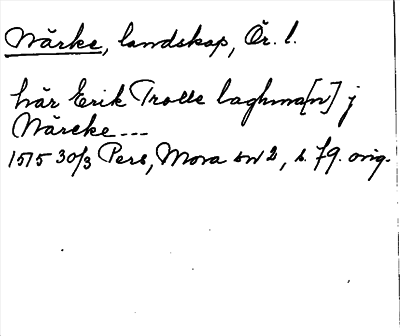 Närke, landskap, Ör. l.
här Erik Trolle laghma[n] j
Närcke ---
1515 30/3 Perg, Mora sn 2, s. 79. orig.